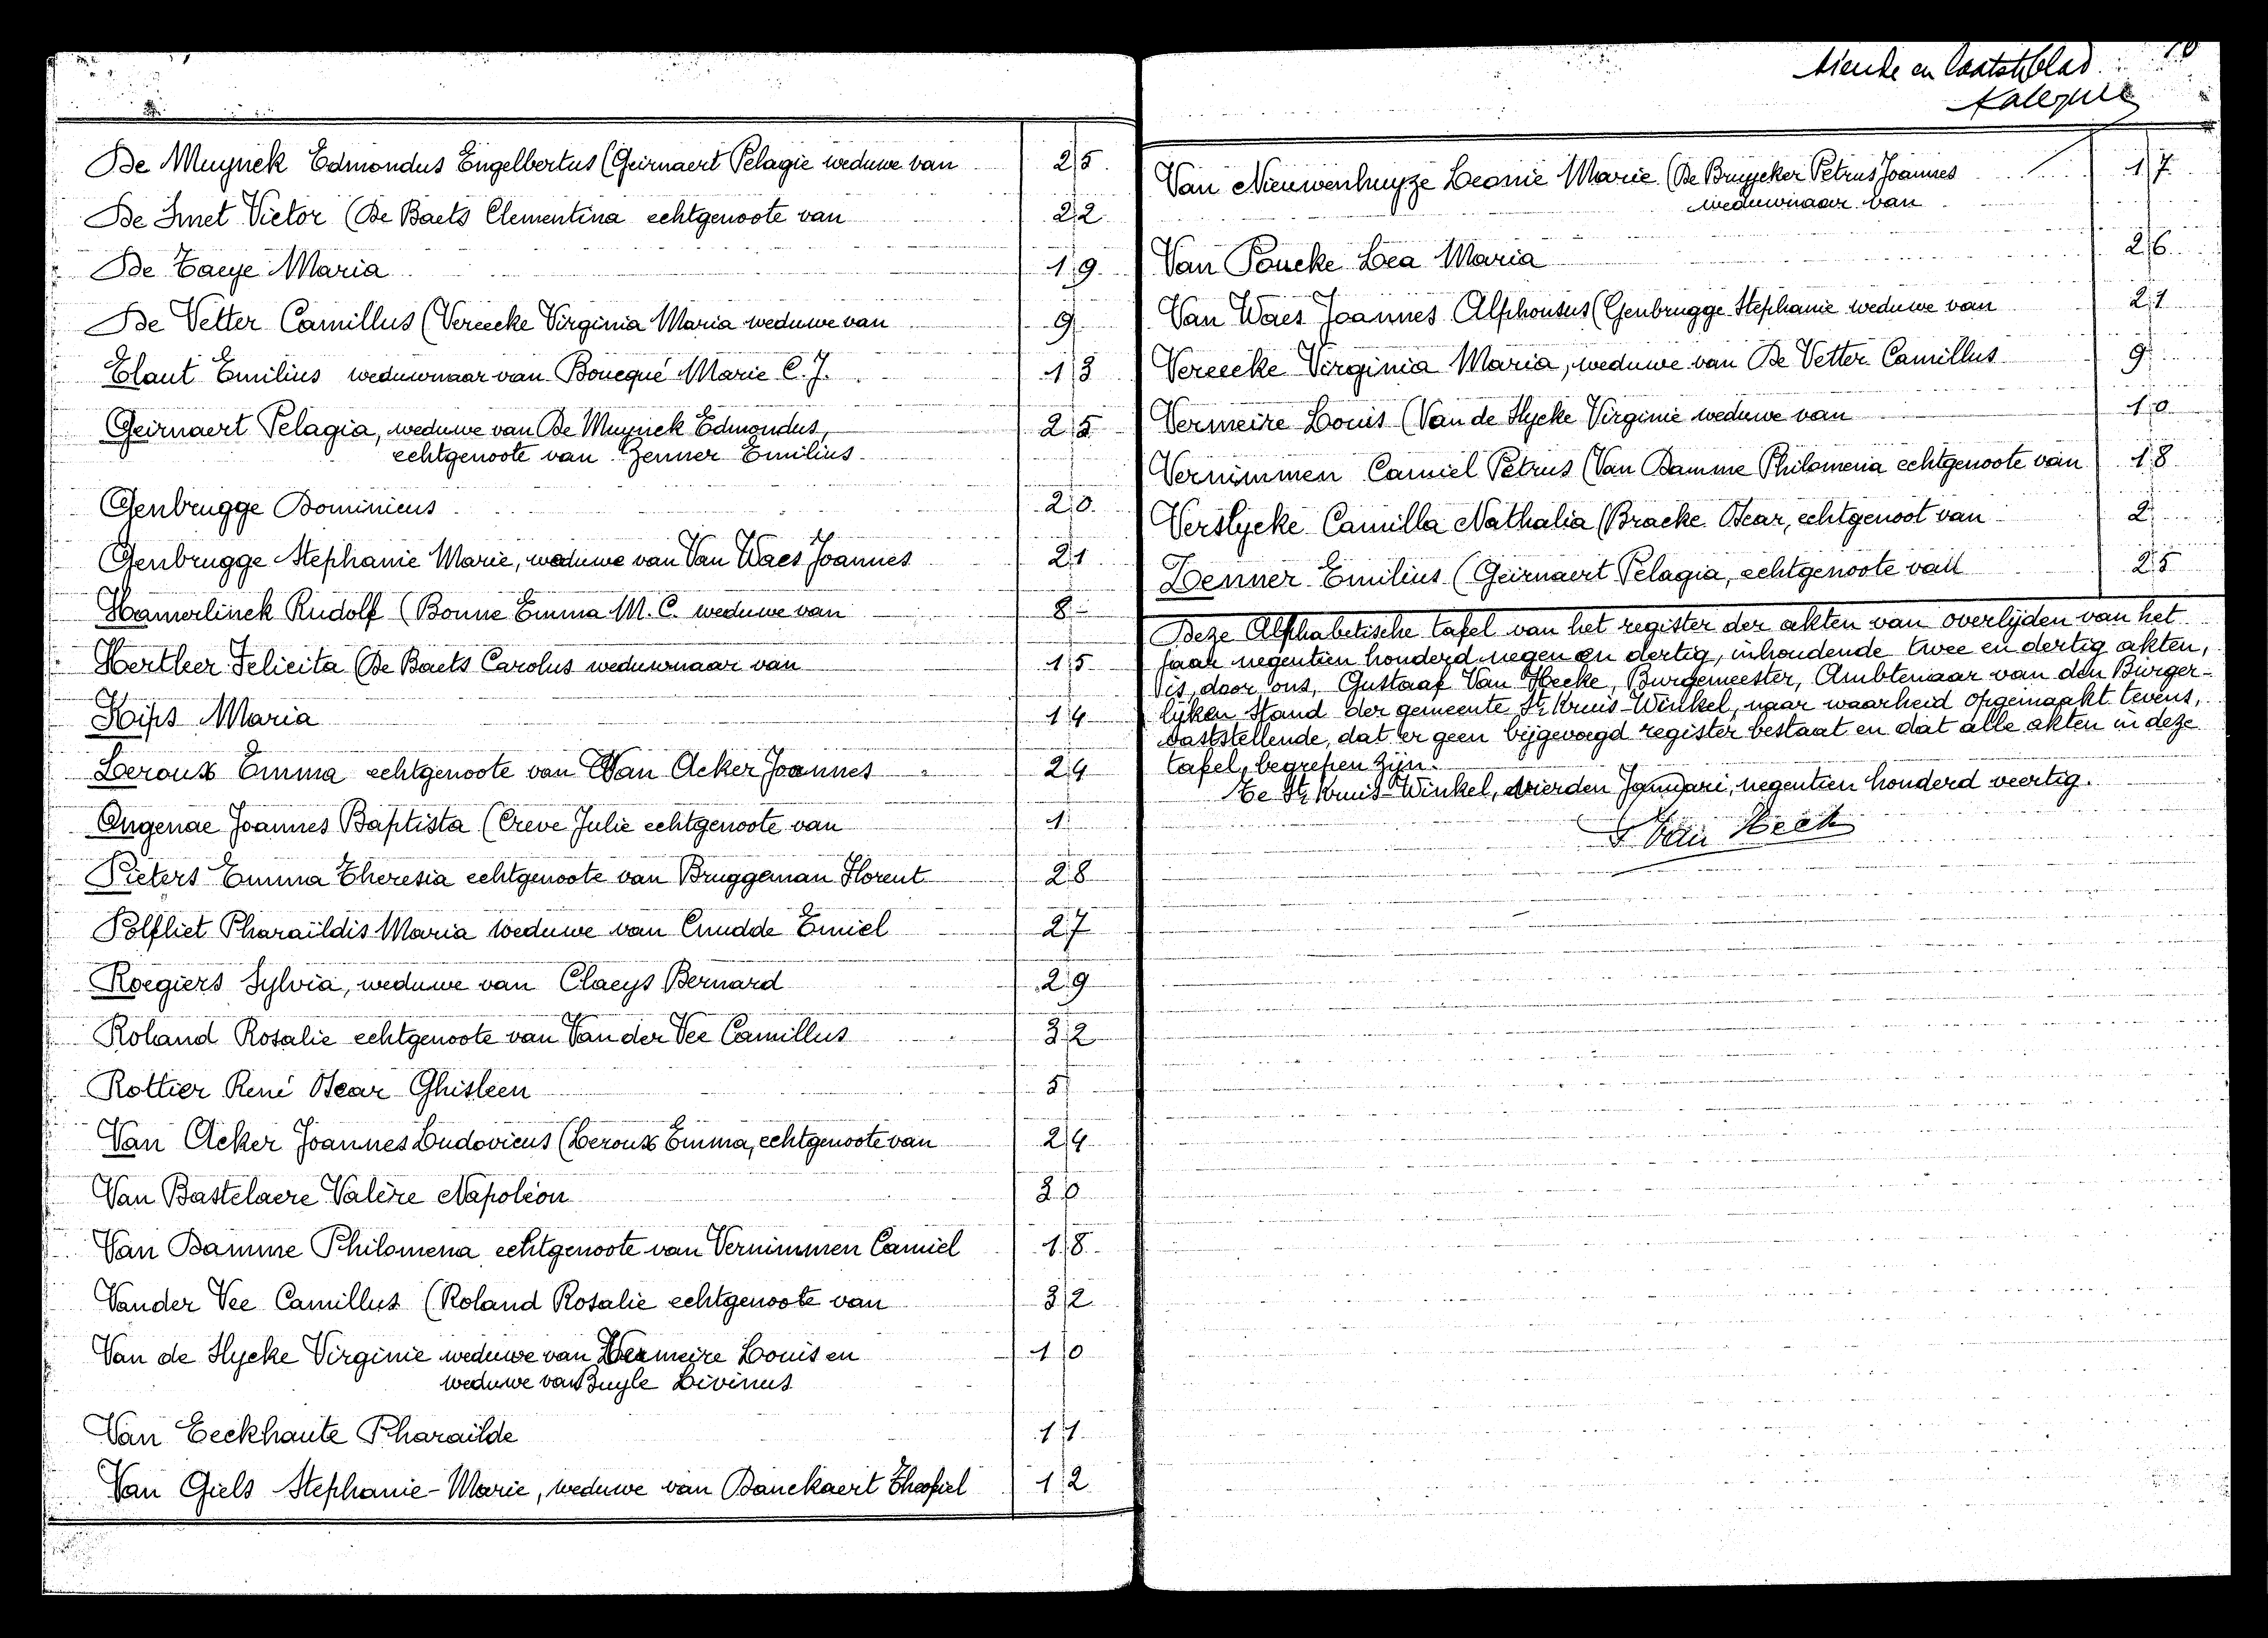 De Muynck Edmondus Engelbertus (Geirnaert Pelagie weduwe van 25
De Smet Victor (De Baets Clementina echtgenoote van 22
De Taeye Maria 19
De Vetter Camillus (Vereecke Virginia Maria weduwe van 9
Elaut Emilius weduwnaar van Boucqué Marie C. J. 13
Geirnaert Pelagia, weduwe van De Muynck Edmondus, 25
echtgenoote van Zenner Emilius
Genbrugge Dominicus 20
Genbrugge Stephanie Marie, weduwe van Van Waes Joannes 21
Hamerlinck Rudolf (Bonne Emma M. C. weduwe van 8
Herther Felicita (De Baets Carolus weduwnaar van 15
Kips Maria 14
Leroux Emma echtgenoote van Van Acker Joannes 24
Ongenae Joannes Baptista (Creve Julie echtgenoote van 1
Pieters Emma Theresia echtgenoote van Bruggeman Florent 28
Polfliet Pharaïldis Maria weduwe van Cnudde Emiel 27
Roegiers Sylvia, weduwe van Claeys Bernard 29
Roland Rosalie echtgenoote van Van der Vee Camillus 32
Rottier René Oscar Ghisleen 5
Van Acker Joannes Ludovicus (Leroux Emma, echtgenoote van 24
Van Bastelaere Valère Napoléon 30
Van Damme Philomena echtgenoote van Vernimmen Camiel 18
Vander Vee Camillus (Roland Rosalie echtgenoote van 32
Van de Slycke Virginie weduwe van Vermeire Louis en 10
weduwe van Buyle Livinus
Van Eeckhaute Pharaïlde 11
Van Giels Stephanie-Marie, weduwe van Danckaert Theofiel 12
tiende en laatste blad 10
Van Nieuwenhuyze Leonie Marie (De Bruycker Petrus Joannes 17
weduwnaar van
Van Poucke Lea Maria 26
Van Waes Joannes Alphonsus (Genbrugge Stephanie weduwe van 21
Vereecke Virginia Maria, weduwe van De Vetter Camillus 9
Vermeire Louis (Van de Slycke Virginie weduwe van 10
Vernimmen Camiel Petrus (Van Damme Philomena echtgenoote van 18
Verslycke Camilla Nathalia (Bracke Oscar, echtgenoot van 2
Zenner Emilius (Geirnaert Pelagia, echtgenoote van 25
Deze Alphabetische tafel van het register der akten van overlijden van het
jaar negentien honderd negen en dertig, inhoudende twee en dertig akten,
is, door ons, Gustaaf Van Hecke, Burgemeester, Ambtenaar van den Burger-
lijken Stand der gemeente St Kruis-Winkel, naar waarheid opgemaakt tevens,
vaststellende, dat er geen bijgevoegd register bestaat en dat alle akten in deze
tafel, begrepen zijn.
Te St Kruis-Winkel, den vierden Januari, negentien honderd veertig.
G Van Hecke